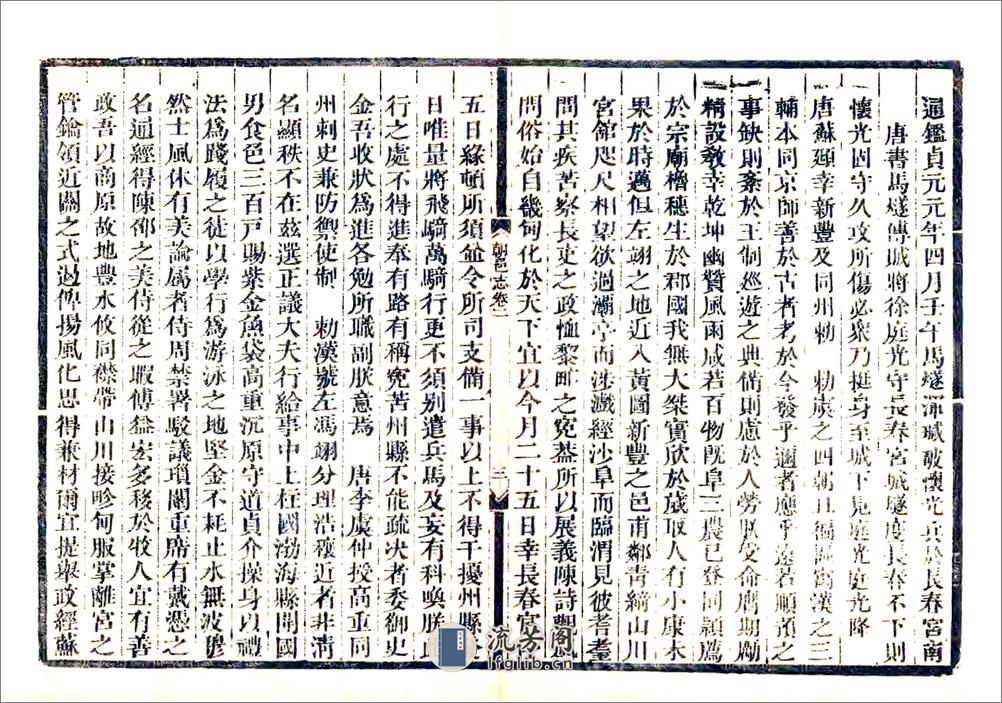 通鑑貞元元年四月壬午馬燧渾瑊破懷光兵於長春宮南
唐書馬燧傳城將徐庭光守長春宮城燧度長春不下則
懷光固守久攻所傷必衆乃挺身至城下見庭光庭光降
唐蘇頲幸新豐及同州勅 勅虞之四朝且徧漢之三
輔本同京師善於古者考於今發乎邇者應乎遠若順省之
事缺則紊於王制巡遊之典備則慮於人勞朕受命膺期勵
精設教幸乾坤幽贊風雨咸若百物旣阜三農已登同潁薦
於宗廟櫓穗生於郡國我無大桀實欣於歲取人有小康本
果於時邁但左翊之地近入黃圖新豐之邑甫鄰青綺山川
宮館咫尺相望欲過灞亭而涉滻經沙阜而臨渭見彼耆耋
問其疾苦察長吏之政恤黎甿之寃葢所以展義陳詩觀風
問俗始自畿甸化於天下宜以今月二十五日幸長春宮
朝邑志卷三
三
五日緣頓所須並令所司支備一事以上不得干擾州縣
日唯量將飛騎萬騎行更不須别遣兵馬及妄有科喚朕
行之處不得進奉有路有稱寃苦州縣不能疏决者委御史
金吾收狀爲進各勉所職副朕意焉 唐李虞仲授高重同
州刺史兼防禦使制 勅漢號左馮翊分理浩穰近者非清
名顯秩不在兹選正議大夫行給事中上柱國渤海縣開國
男食邑三百戸賜紫金魚袋高重沉原守道貞介操身以禮
法爲踐履之徒以學行爲游泳之地堅金不耗止水無波穆
然士風休有美論屬者侍周禁署駁議瑣闈重席有戴憑之
名通經得陳邵之美侍從之暇傅益宏多移於牧人宜有善
政吾以商原故地豐水攸同襟帶山川接畛甸服掌離宮之
管鑰領近關之式遏俾揚風化思得兼材爾宜提舉政經蘇
流芳阁
lfglib.cn